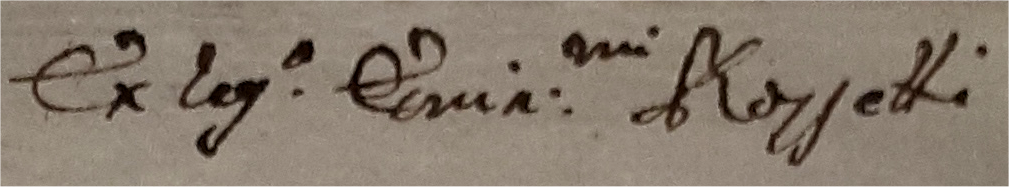 Ex leg.º Emin.mi Rossetti